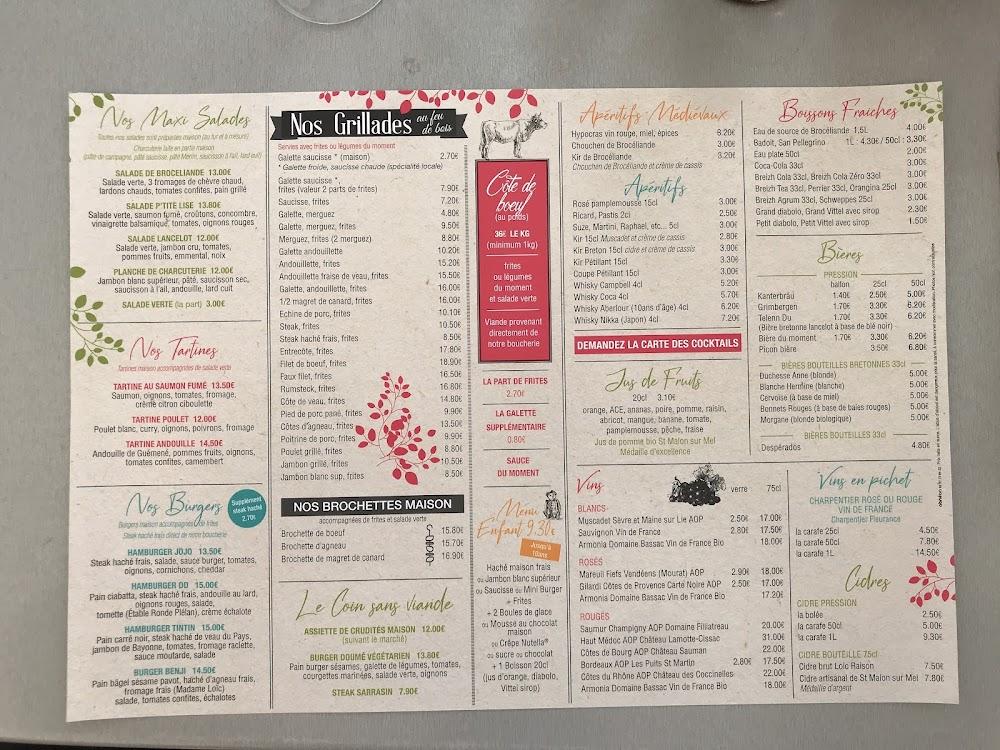 Nos Maxi Salades
Toutes nos salades sont préparées maison (au fur et à mesure)
Charcuterie faite en partie maison
(pâté de campagne, pâté saucisse, pâté Merlin, saucisson à l'ail, lard cuit)
SALADE DE BROCELIANDE 13.00€
Salade verte, 3 fromages de chèvre chaud,
lardons chauds, tomates confites, pain grillé
SALADE P'TITE LISE 13.80€
Salade verte, saumon fumé, croûtons, concombre,
vinaigrette balsamique, tomates, oignons rouges
SALADE LANCELOT 12.00€
Salade verte, jambon cru, tomates,
pommes fruits, emmental, noix
PLANCHE DE CHARCUTERIE 12.00€
Jambon blanc supérieur, pâté, saucisson sec,
saucisson à l'ail, andouille, lard cuit
SALADE VERTE (la part) 3.00€
Nos Tartines
Tartines maison accompagnées de salade verte
TARTINE AU SAUMON FUMÉ 13.50€
Saumon, oignons, tomates, fromage,
crème citron ciboulette
TARTINE POULET 12.00€
Poulet blanc, curry, oignons, poivrons, fromage
TARTINE ANDOUILLE 14.50€
Andouille de Guémené, pommes fruits, oignons,
tomates confites, camembert
Nos Burgers
Burgers maison accompagnés de frites
Steak haché frais direct de notre boucherie
Supplément
steak haché
2.70€
HAMBURGER JOJO 13.50€
Steak haché frais, salade, sauce burger, tomates,
oignons, cornichons, cheddar
HAMBURGER DD 15.00€
Pain ciabatta, steak haché frais, andouille au lard,
oignons rouges, salade,
tomette (Étable Ronde Plélan), crème échalote
HAMBURGER TINTIN 15.00€
Pain carré noir, steak haché de veau du Pays,
jambon de Bayonne, tomates, fromage raclette,
sauce moutarde, salade
BURGER BENJI 14.50€
Pain bägel sésame pavot, haché d'agneau frais,
fromage frais (Madame Loïc)
salade, tomates confites, échalotes
Nos Grillades au feu de bois
Servies avec frites ou légumes du moment
Galette saucisse * (maison) 2.70€
* Galette froide, saucisse chaude (spécialité locale)
Galette saucisse *,
frites (valeur 2 parts de frites) 7.90€
Saucisse, frites 7.20€
Galette, merguez 4.80€
Galette, merguez, frites 9.50€
Merguez, frites (2 merguez) 8.80€
Galette andouillette 10.20€
Andouillette, frites 15.20€
Andouillette fraise de veau, frites 15.50€
Galette, andouillette, frites 16.00€
1/2 magret de canard, frites 16.00€
Echine de porc, frites 10.10€
Steak, frites 10.50€
Steak haché frais, frites 8.50€
Entrecôte, frites 17.80€
Filet de boeuf, frites 18.90€
Faux filet, frites 16.50€
Rumsteck, frites 16.80€
Côte de veau, frites 14.80€
Pied de porc pané, frites 9.90€
Côtes d'agneau, frites 13.50€
Poitrine de porc, frites 9.90€
Poulet grillé, frites 8.80€
Jambon grillé, frites 10.50€
Jambon blanc sup, frites 8.50€
NOS BROCHETTES MAISON
accompagnées de frites et salade verte
Brochette de boeuf 15.80€
Brochette d'agneau 15.70€
Brochette de magret de canard 16.90€
Le Coin sans viande
ASSIETTE DE CRUDITÉS MAISON 12.00€
(suivant le marché)
BURGER DOUMÉ VÉGÉTARIEN 13.80€
Pain burger sésames, galette de légumes, tomates,
courgettes marinées, salade verte, oignons
STEAK SARRASIN 7.90€
Côte de
boeuf
(au poids)
36€ LE KG
(minimum 1kg)
frites
ou légumes
du moment
et salade verte
Viande provenant
directement de
notre boucherie
LA PART DE FRITES
2.70€
LA GALETTE
SUPPLÉMENTAIRE
0.80€
SAUCE
DU MOMENT
Menu
Enfant 9.30€
Jusqu'à
10ans
Haché maison frais
ou Jambon blanc supérieur
ou Saucisse ou Mini Burger
+ Frites
+ 2 Boules de glace
ou Mousse au chocolat
maison
ou Crêpe Nutella®
ou sucre ou chocolat
+ 1 Boisson 20cl
(jus d'orange, diabolo,
Vittel sirop)
Apéritifs Médiévaux
Hypocras vin rouge, miel, épices 6.20€
Chouchen de Brocéliande 3.00€
Kir de Brocéliande 3.20€
Chouchen de Brocéliande et crème de cassis
Apéritifs
Rosé pamplemousse 15cl 3.00€
Ricard, Pastis 2cl 2.50€
Suze, Martini, Raphael, etc... 5cl 3.00€
Kir 15cl Muscadet et crème de cassis 2.80€
Kir Breton 15cl cidre et crème de cassis 3.00€
Kir Pétillant 15cl 3.30€
Coupe Pétillant 15cl 3.00€
Whisky Campbell 4cl 5.20€
Whisky Coca 4cl 5.70€
Whisky Aberlour (10ans d'âge) 4cl 6.20€
Whisky Nikka (Japon) 4cl 7.20€
DEMANDEZ LA CARTE DES COCKTAILS
Jus de Fruits
20cl 3.10€
orange, ACE, ananas, poire, pomme, raisin,
abricot, mangue, banane, tomate,
pamplemousse, pêche, fraise
Jus de pomme bio St Malon sur Mel
Médaille d'excellence
Boissons Fraîches
Eau de source de Brocéliande 1,5L 4.00€
Badoit, San Pellegrino 1L : 4.30€ / 50cl : 3.30€
Eau plate 50cl 2.00€
Coca-Cola 33cl 3.00€
Breizh Cola 33cl, Breizh Cola Zéro 33cl 3.00€
Breizh Tea 33cl, Perrier 33cl, Orangina 25cl 3.00€
Breizh Agrum 33cl, Schweppes 25cl 3.00€
Grand diabolo, Grand Vittel avec sirop 2.30€
Petit diabolo, Petit Vittel avec sirop 1.50€
Bières
PRESSION
balon 25cl 50cl
Kanterbräu 1.40€ 2.50€ 5.00€
Grimbergen 1.70€ 3.30€ 6.20€
Telenn Du 1.70€ 3.30€ 6.20€
(Bière bretonne lancelot à base de blé noir)
Bière du moment 1.70€ 3.30€ 6.20€
Picon bière 3.50€ 6.80€
BIÈRES BOUTEILLES BRETONNES 33cl
Duchesse Anne (blonde) 5.00€
Blanche Hermine (blanche) 5.00€
Cervoise (à base de miel) 5.00€
Bonnets Rouges (à base de baies rouges) 5.00€
Morgane (blonde biologique) 5.00€
BIÈRES BOUTEILLES 33cl
Despérados 4.80€
Vins
verre 75cl
BLANCS
Muscadet Sèvre et Maine sur Lie AOP 2.50€ 17.00€
Sauvignon Vin de France 2.80€ 17.50€
Armonia Domaine Bassac Vin de France Bio 18.00€
ROSÉS
Mareuil Fiefs Vendéens (Mourat) AOP 2.90€ 18.00€
Gilardi Côtes de Provence Carte Noire AOP 2.50€ 17.50€
Armonia Domaine Bassac Vin de France Bio 17.20€
ROUGES
Saumur Champigny AOP Domaine Filliatreau 20.00€
Haut Médoc AOP Château Lamotte-Cissac 31.00€
Côtes de Bourg AOP Château Sauman 22.00€
Bordeaux AOP Les Puits St Martin 2.80€ 17.50€
Côtes du Rhône AOP Château des Coccinelles 22.00€
Armonia Domaine Bassac Vin de France Bio 18.00€
Vins en pichet
CHARPENTIER ROSÉ OU ROUGE
VIN DE FRANCE
Charpentier Fleurance
la carafe 25cl 4.50€
la carafe 50cl 7.80€
la carafe 1L 14.50€
Cidres
CIDRE PRESSION
la bolée 2.50€
la carafe 50cl 5.00€
la carafe 1L 9.30€
CIDRE BOUTEILLE 75cl
Cidre brut Loïc Raison 7.50€
Cidre artisanal de St Malon sur Mel 7.80€
Médaille d'argent